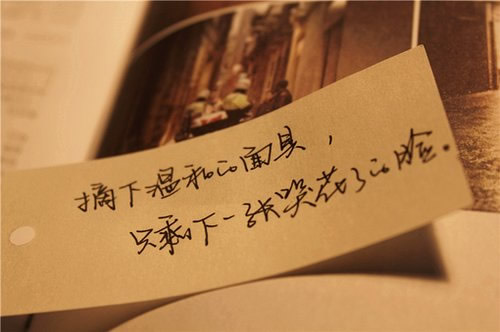 摘下温和的面具，
只剩下一张哭花了的脸。